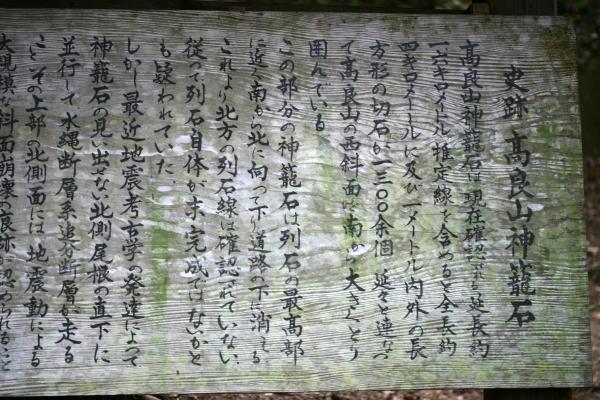 史跡 高良山神籠石
高良山神籠石は現在確認される延長約
一、六キロメートル、推定線を含めると全長約
四キロメートルに及び一メートル内外の長
方形の切石が一三〇〇余個、延々と連なっ
て高良山の西斜面を南から大きくとり
囲んでいる。
この部分の神籠石は列石の最高部
に近く南から北に向って下り道路の下に消える
これより北方の列石線は確認されていない。
従って列石自体が未完成ではないかと
も疑われていた。
しかし最近地震考古学の発達によって
神籠石の見い出せない北側尾根の直下に
並行して水縄断層系追分断層が走る
こと、その上部の北側面には、地震動による
大規模な斜面崩壊の痕跡が認められること